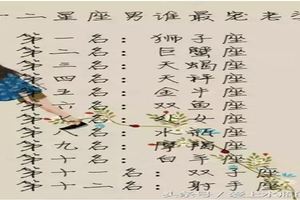 二星座男谁最宠老
第一名：狮子座
第二名：巨蟹座
第三名：天蝎座
第四名：天秤座
第五名：金牛座
第六名：双鱼座
名：水瓶座
第九名：摩羯座
第十名：白羊座
第十一名：双子座
第十二名：射手座
头条号